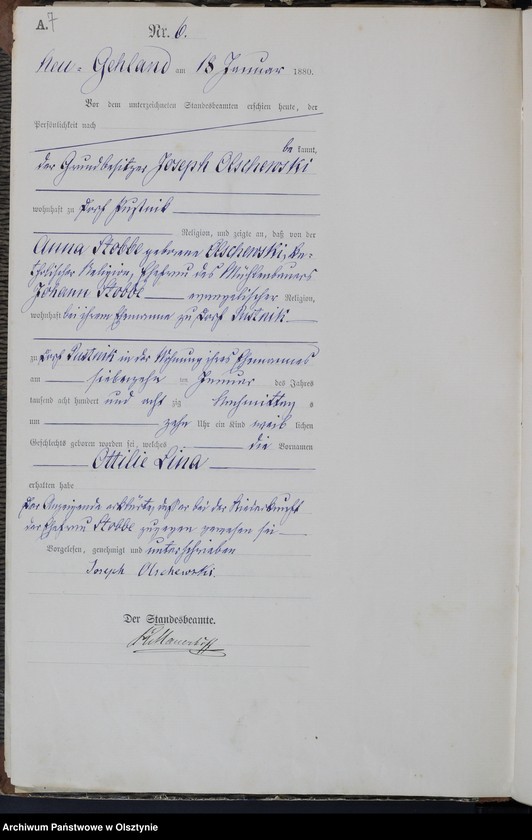 A. 7
Nr. 6.
Neu-Gehland am 18 Januar 1880.
Vor dem unterzeichneten Standesbeamten erschien heute, der
Persönlichkeit nach
be kannt,
der Grundbesitzer Joseph Olschewski
wohnhaft zu Dorf Pustnik
Religion, und zeigte an, daß von der
Anna Stobbe geborene Olschewski, ka-
tholischer Religion, Ehefrau des Mühlenbauers
Johann Stobbe evangelischer Religion,
wohnhaft bei ihrem Ehemanne zu Dorf Pustnik
zu Dorf Pustnik in der Wohnung ihres Ehemannes
am siebzehn ten Januar des Jahres
tausend acht hundert und acht zig Nachmittag s
um zehn Uhr ein Kind weib lichen
Geschlechts geboren worden sei, welches die Vornamen
Ottilie Lina
erhalten habe
Der Anzeigende erklärte, daß er bei der Niederkunft
der Ehefrau Stobbe zugegen gewesen sei
Vorgelesen, genehmigt und unterschrieben
Joseph Olschewski.
Der Standesbeamte.
Archiwum Państwowe w Olsztynie